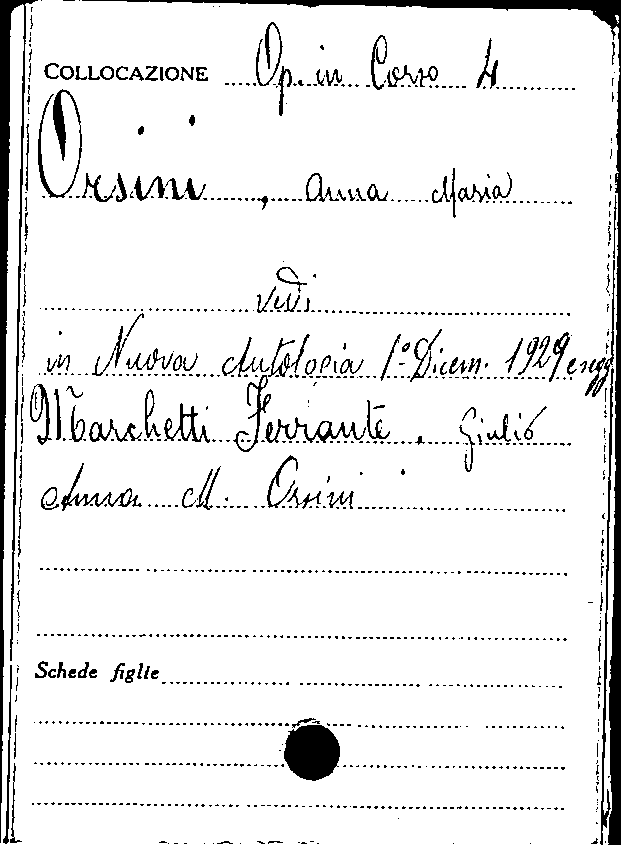 COLLOCAZIONE Op. in Corso 4
Orsini, Anna Maria
vedi
in Nuova Antologia 1° Dicem. 1929 e segg
Marchetti Ferrante, Giulio
Anna M. Orsini
Schede figlie